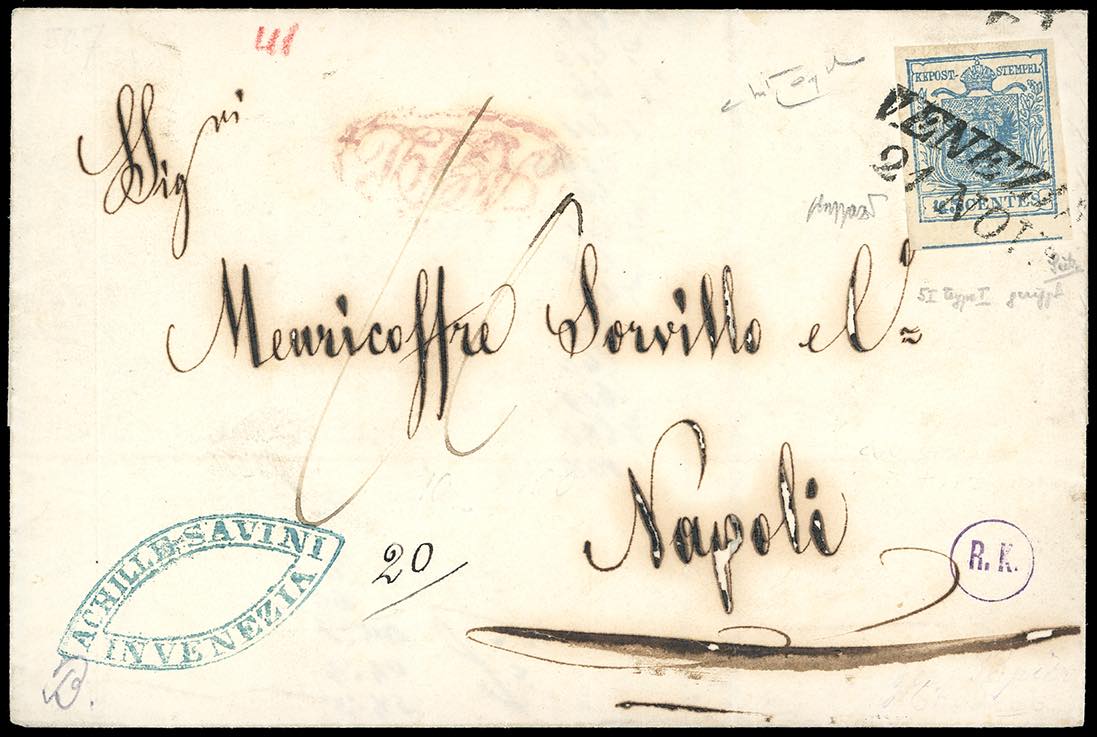 Sig ri
Meuricoffre Sorvillo e C.i
Napoli
20
KKPOST-STEMPEL
45 CENTES
VENEZIA
21 NOV.
5I Type I geript
ACHILLE SAVINI
IN VENEZIA
R. K.
D.